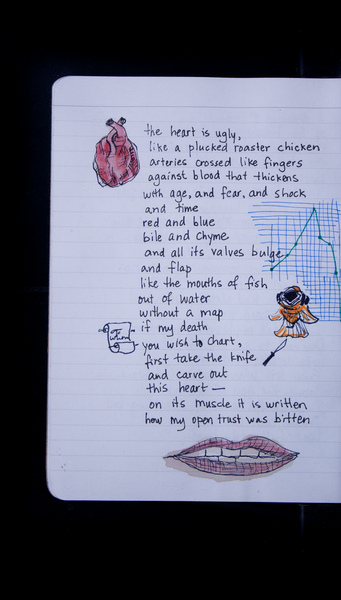 the heart is ugly,
like a plucked roaster chicken
arteries crossed like fingers
against blood that thickens
with age, and fear, and shock
and time
red and blue
bile and chyme
and all its valves bulge
and flap
like the mouths of fish
out of water
without a map
if my death
you wish to chart,
first take the knife
and carve out
this heart —
on its muscle it is written
how my open trust was bitten